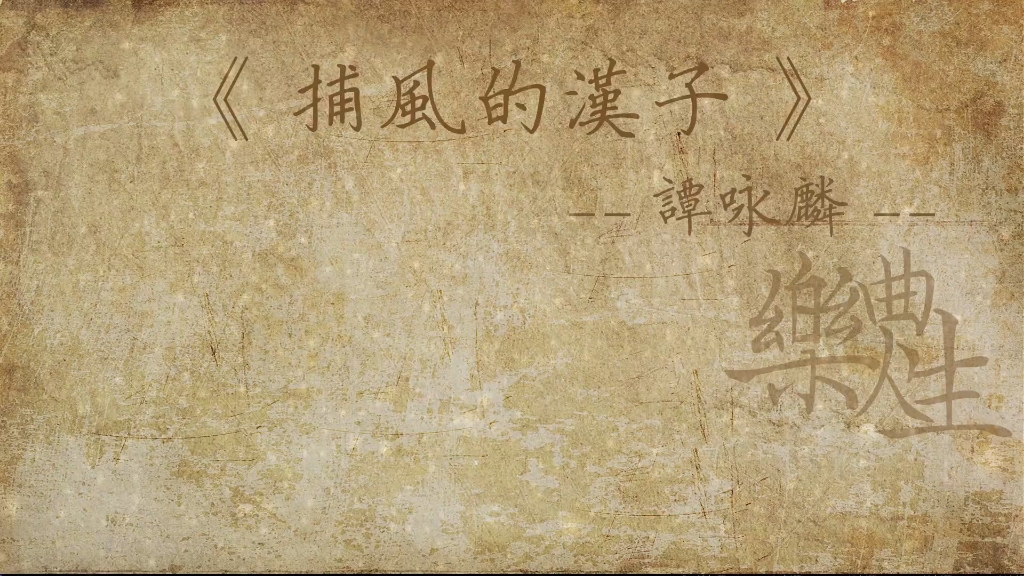 《捕風的漢子》
-- 譚咏麟 --
樂曲人生